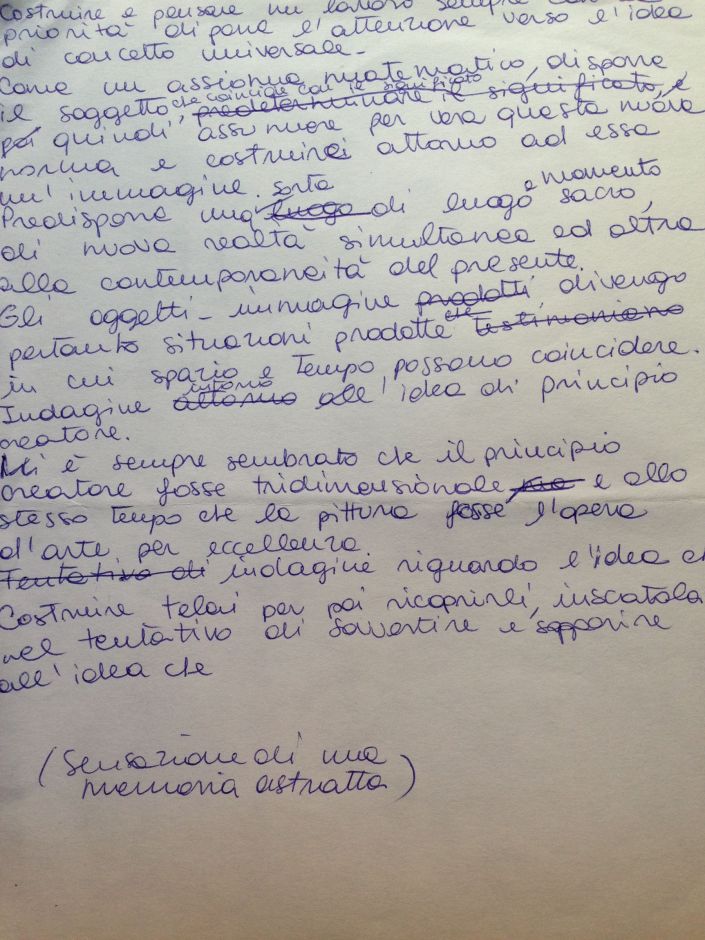 Costruire e pensare un lavoro sempre con la
priorità di porre l'attenzione verso l'idea
di concetto universale.
Come un assioma matematico, dispone
che coincide con il significato
il soggetto, predeterminare il significato, e
poi quindi, assumere per vera questa nuova
norma e costruirci attorno ad essa
un'immagine.
Predispone una sorta luogo di luogo e momento sacro,
di nuova realtà simultanea ed altra
alla contemporaneità del presente.
Gli oggetti-immagine prodotti, divengo
pertanto situazioni prodotte che testimoniano
in cui spazio e tempo possono coincidere.
Indagine attorno intorno all'idea di principio
creatore.
Mi è sempre sembrato che il principio
creatore fosse tridimensionale e allo
stesso tempo che la pittura fosse l'opera
d'arte per eccellenza.
Tentativo di indagine riguardo l'idea ch
Costruire telai per poi ricoprirli, inscatola
nel tentativo di sovvertire e sopperire
all'idea che
(Sensazione di una
memoria astratta)